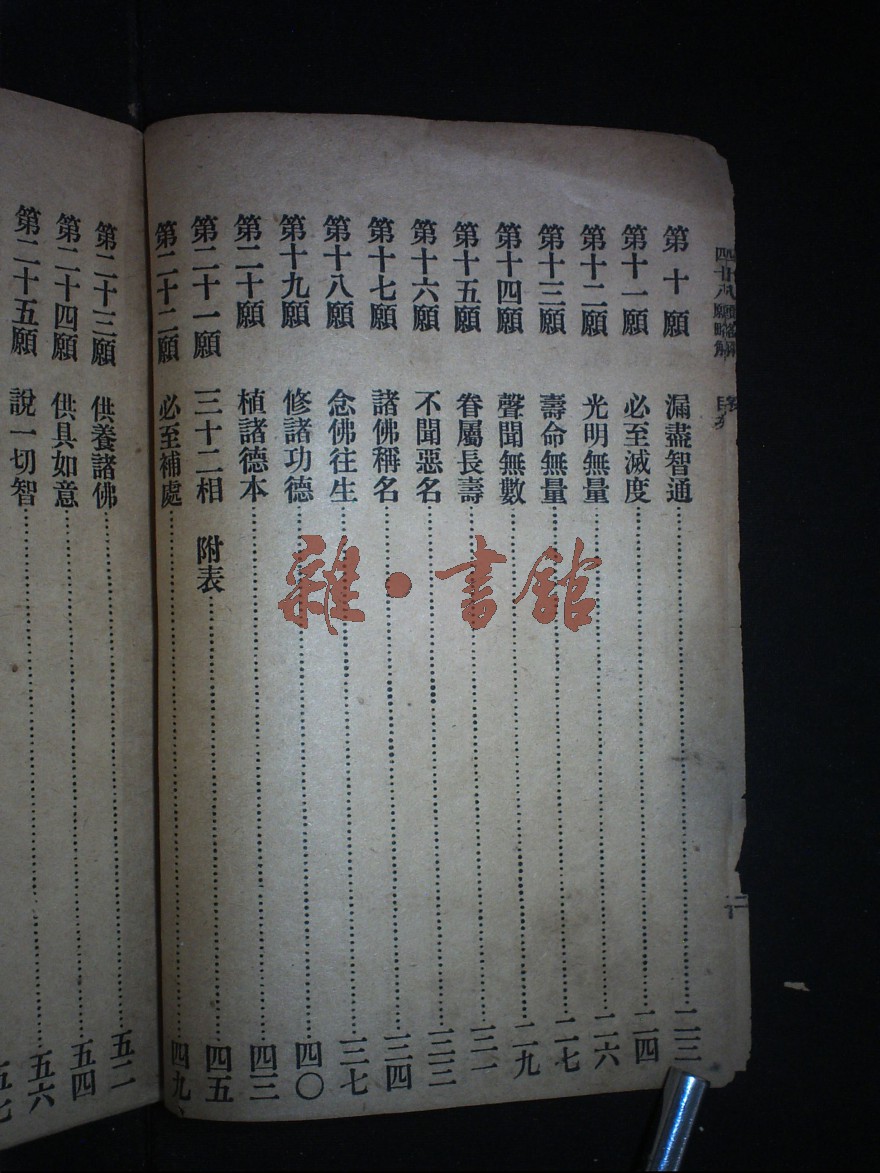 四十八願略解 目次
二
第十願 漏盡智通 二三
第十一願 必至滅度 二四
第十二願 光明無量 二六
第十三願 壽命無量 二七
第十四願 聲聞無數 二九
第十五願 眷屬長壽 三一
第十六願 不聞惡名 三三
第十七願 諸佛稱名 三四
第十八願 念佛往生 三七
第十九願 修諸功德 四〇
第二十願 植諸德本 四三
第二十一願 三十二相 附表 四五
第二十二願 必至補處 四九
第二十三願 供養諸佛 五二
第二十四願 供具如意 五四
第二十五願 說一切智 五六
五七
雜·書館